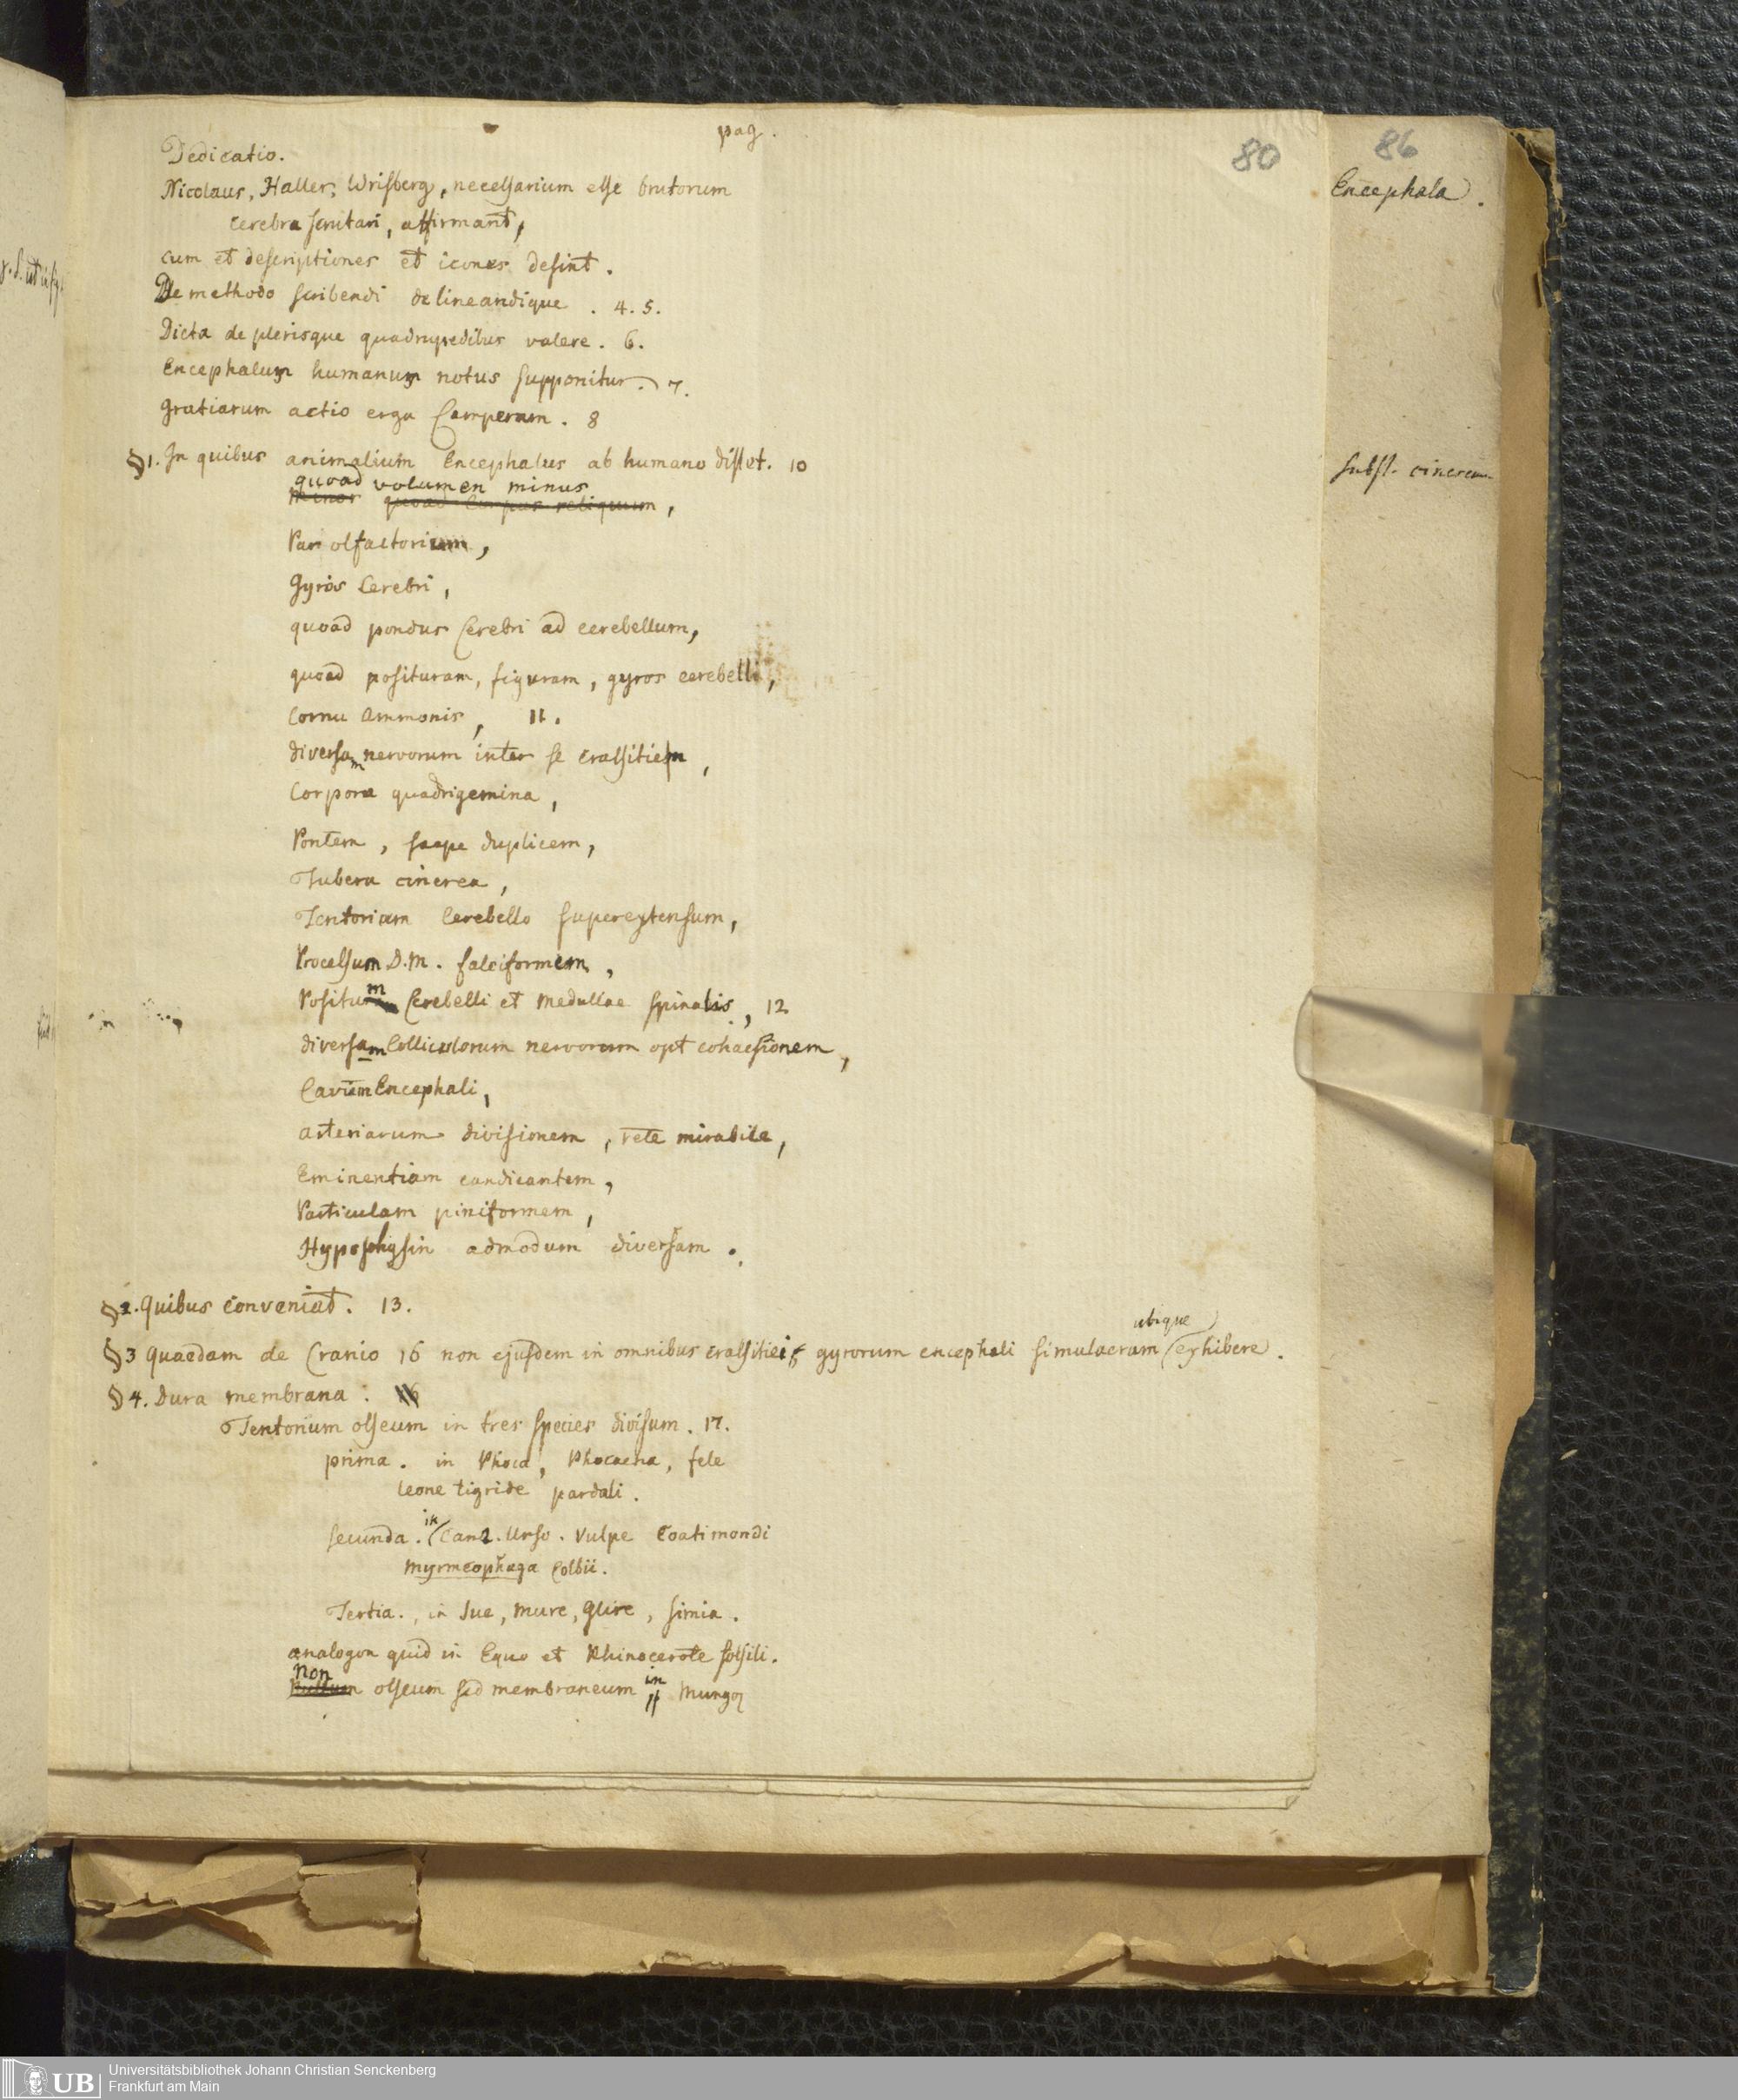 pag.
80
86
Dedicatio.
Nicolaus, Haller, Wrisberg, necessarium esse brutorum
Encephala.
cerebra scrutari, affirmant,
cum et descriptiones et icones desint.
De methodo scribendi delineandique . 4. 5.
Dicta de plerisque quadrupedibus valere . 6.
Encephalum humanum notus supponitur. 7.
Gratiarum actio erga Camperum . 8
§1. In quibus animalium Encephalus ab humano distet. 10
subst. cinerea
quoad volumen minus
minor quoad corpus reliquum,
Par olfactorium,
Gyros Cerebri,
quoad pondus Cerebri ad cerebellum,
quoad posituram, figuram, gyros cerebelli,
Cornu Ammonis, 11.
diversam nervorum inter se crassitiem,
Corpora quadrigemina,
Pontem, saepe duplicem,
Tubera cinerea,
Tentorium Cerebello superextensum,
Processum D.M. falciformem,
Positum Cerebelli et Medullae spinalis, 12
diversam Colliculorum nervorum opt cohaesionem,
Cavum Encephali,
arteriarum divisionem, rete mirabile,
Eminentiam candicantem,
Particulam piniformem,
Hypophysin admodum diversam.
§2. Quibus conveniat. 13.
ubique
§3 Quaedam de Cranio 16 non ejusdem in omnibus crassitiei, gyrorum encephali simulacrum exhibere.
§4. Dura membrana. 16
Tentorium osseum in tres species divisum. 17.
prima. in Phoca, Phocaena, fele
leone tigride pardali.
secunda. in Cane. Urso. Vulpe Coatimondi
Myrmeophaga Colbii.
Tertia., in Sue, Mure, Glire, Simia.
analogon quid in Equo et Rhinocerote fossili.
Non
Nullum osseum sed membraneum in Mungoz
UB
Universitätsbibliothek Johann Christian Senckenberg
Frankfurt am Main